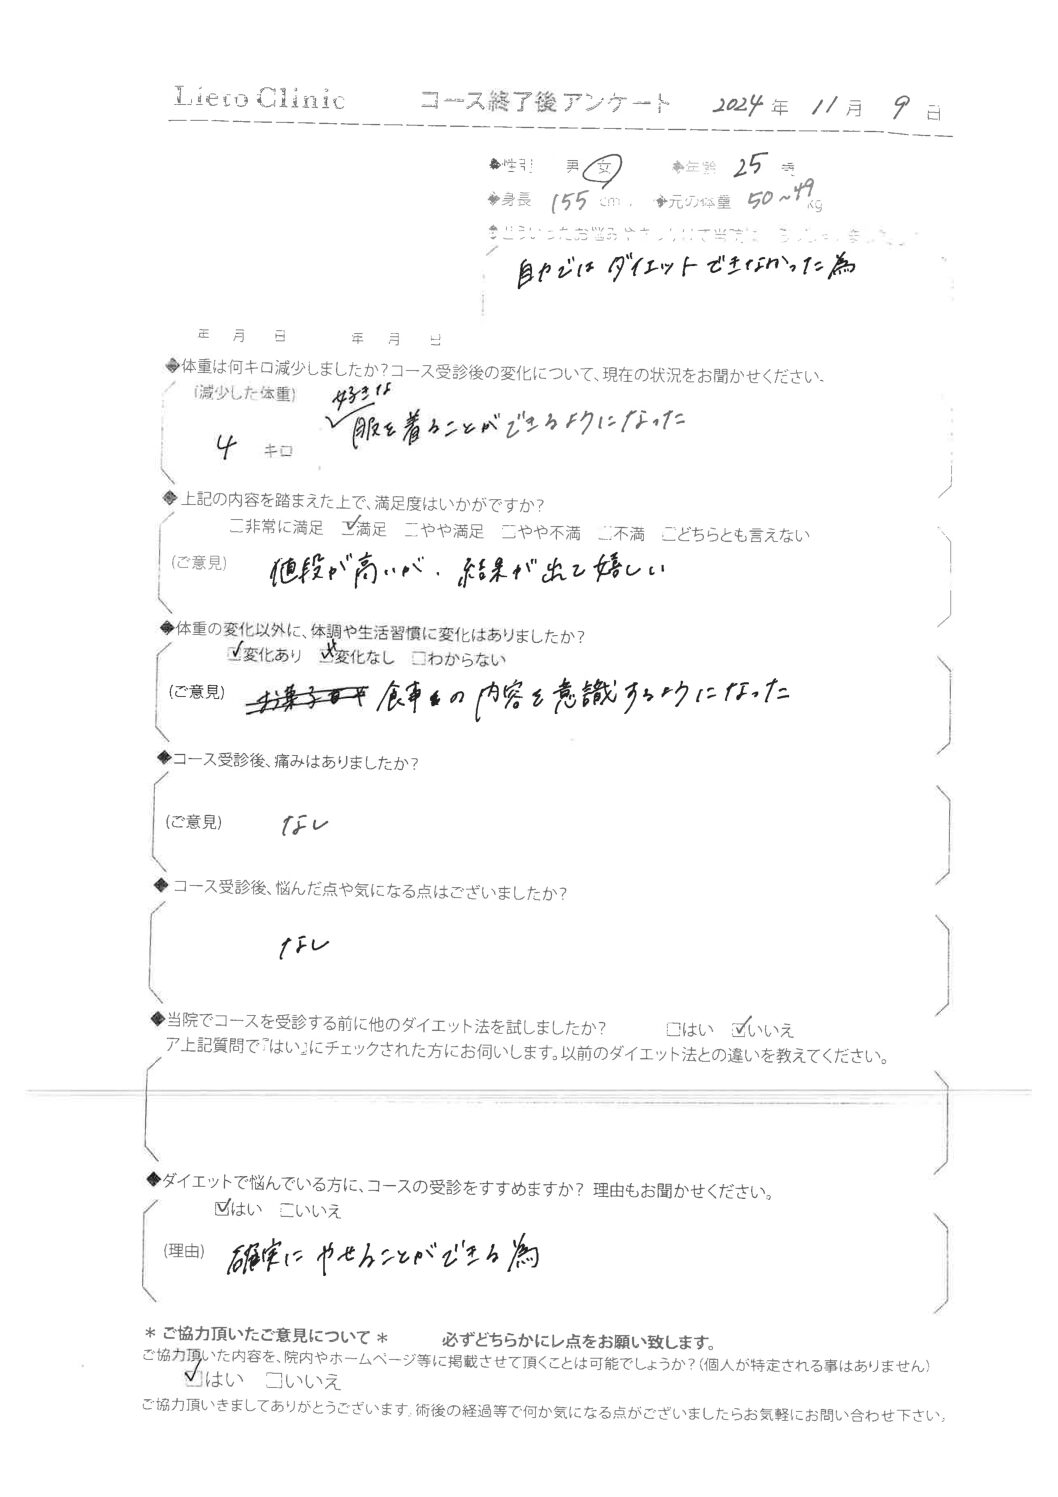 Lieto Clinic コース終了後アンケート 2024年 11月 9日
◆性別 男 女 ◆年齢 25 歳
◆身長 155 cm ◆元の体重 50~49 kg
自力ではダイエットできなかった為
年 月 日 年 月 日
◆体重は何キロ減少しましたか?コース受診後の変化について、現在の状況をお聞かせください。
(減少した体重) 好きな
4 キロ 服を着ることができるようになった
◆上記の内容を踏まえた上で、満足度はいかがですか?
□非常に満足 ☑満足 □やや満足 □やや不満 □不満 □どちらとも言えない
(ご意見) 値段が高いが、結果が出て嬉しい
◆体重の変化以外に、体調や生活習慣に変化はありましたか?
☑変化あり ☑変化なし □わからない
(ご意見) 食事の内容を意識するようになった
◆コース受診後、痛みはありましたか?
(ご意見) なし
◆コース受診後、悩んだ点や気になる点はございましたか?
なし
◆当院でコースを受診する前に他のダイエット法を試しましたか? □はい ☑いいえ
ア上記質問で『はい』にチェックされた方にお伺いします。以前のダイエット法との違いを教えてください。
◆ダイエットで悩んでいる方に、コースの受診をすすめますか? 理由もお聞かせください。
☑はい □いいえ
(理由) 確実にやせることができる為
＊ご協力頂いたご意見について＊ 必ずどちらかにレ点をお願い致します。
ご協力頂いた内容を、院内やホームページ等に掲載させて頂くことは可能でしょうか?(個人が特定される事はありません)
☑はい □いいえ
ご協力頂いきましてありがとうございます。術後の経過等で何か気になる点がございましたらお気軽にお問い合わせ下さい。